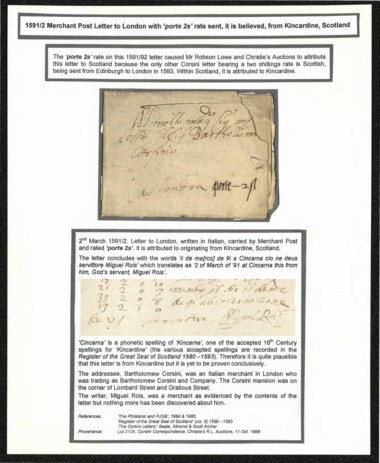 1591/2 Merchant Post Letter to London with 'porte 2s' rate sent, it is believed, from Kincardine, Scotland
The 'porte 2s' rate on this 1591/92 letter caused Mr Robson Lowe and Christie's Auctions to attribute
this letter to Scotland because the only other Corsini letter bearing a two shillings rate is Scottish,
being sent from Edinburgh to London in 1593. Within Scotland, it is attributed to Kincardine.
Bartholome
Corsini
Londra porte – 2s
2nd March 1591/2. Letter to London, written in Italian, carried by Merchant Post
and rated 'porte 2s'. It is attributed to originating from Kincardine, Scotland.
The letter concludes with the words 'ii de ma[rco] de 9i a Cincarna cio ne deus
servittore Miguel Rois' which translates as '2 of March of '91 at Cincarna this from
him, God's servant, Miguel Rois'.
Miguel Rois
'Cincarna' is a phonetic spelling of 'Kincarne', one of the accepted 16th Century
spellings for 'Kincardine' (the various accepted spellings are recorded in the
Register of the Great Seal of Scotland 1580 –1593). Therefore it is quite plausible
that this letter is from Kincardine but it is yet to be proven conclusively.
The addressee, Bartholomew Corsini, was an Italian merchant in London who
was trading as Bartholomew Corsini and Company. The Corsini mansion was
on the corner of Lombard Street and Gratious Street.
The writer, Miguel Rois, was a merchant as evidenced by the contents of the
letter but nothing more has been discovered about him.
References: 'The Philatelist and PJGB', 1984 & 1985
'Register of the Great Seal of Scotland' (vol. 5) 1580 - 1593
'The Corsini Letters', Beale, Almond & Scott Archer
Provenance: Lot 213A, Corsini Correspondence, Christie's R.L. Auctions, 11 Oct. 1988